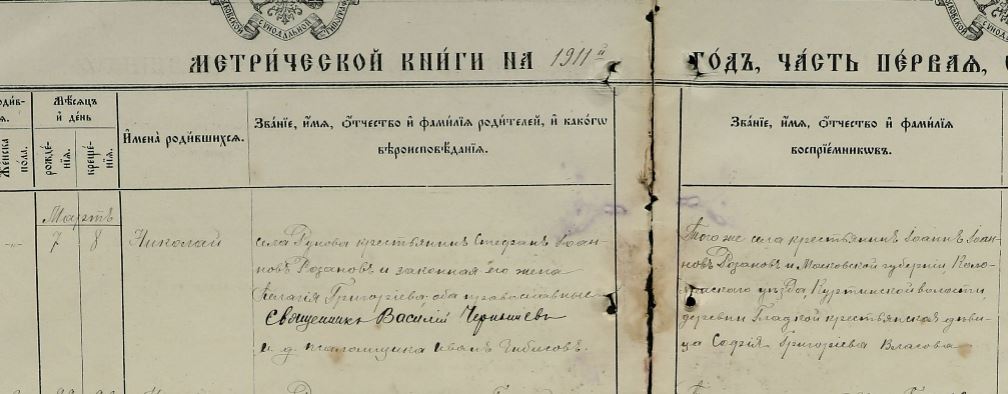 МЕТРИ́ЧЕСКОЙ КНИ́ГИ НА 1911й ГО́ДЪ, ЧА́СТЬ ПЕ́РВАЯ,
Мѣ́сяцъ
и҆ де́нь
рожде́-
нїя.
креще́-
нїя.
Же́нска
по́ла.
И҆мена̀ роди́вшихся.
Зва́нїе, и҆́мя, ѻ҆́тчество и҆ фами́лїя роди́телей, и҆ како́гѡ
вѣроисповѣ́данїя.
Зва́нїе, и҆́мя, ѻ҆́тчество и҆ фами́лїя
воспрїе́мникѡвъ.
Мартъ
7 8 Николай
села крестьянинъ Стефанъ Іоан-
новъ Розановъ и законная его жена
Пелагія Григоріева, оба православные
Священникъ Василій Чернышевъ
и. д. псаломщика Иванъ
Того же села крестьянинъ Іоаннъ Іоан-
новъ Розановъ и Московской губерніи, Коло-
менскаго уѣзда, Куртинской волости,
деревни Гладкой крестьянская дѣви-
ца Софія Григоріева Власова